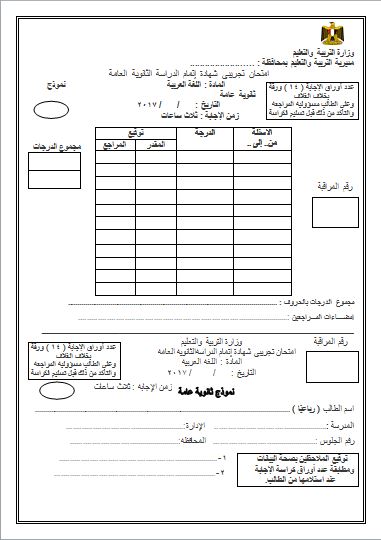 وزارة التربية والتعليم
مديرية التربية والتعليم بمحافظة : ........................
امتحان تجريبى شهادة إتمام الدراسة الثانوية العامة
المادة : اللغة العربية
نموذج
ثانوية عامة
التاريخ : / / ٢٠١٧
زمن الإجابة : ثلاث ساعات
عدد أوراق الإجابة ( ١٤ ) ورقة
بخلاف الغلاف
وعلى الطالب مسؤولية المراجعة
والتأكد من ذلك قبل تسليم الكراسة
الاسئلة
من.. إلى ..
الدرجة
توقيع
المقدر
المراجع
مجموع الدرجات
رقم المراقبة
مجموع الدرجات بالحروف : ........................
إمضاءات المراجعين: ........................
وزارة التربية والتعليم
امتحان تجريبى شهادة إتمام الدراسة الثانوية العامة
المادة : اللغة العربية
التاريخ : / / ٢٠١٧
زمن الإجابة : ثلاث ساعات
نموذج ثانوية عامة
رقم المراقبة
عدد أوراق الإجابة ( ١٤ ) ورقة
بخلاف الغلاف
وعلى الطالب مسؤولية المراجعة
والتأكد من ذلك قبل تسليم الكراسة
اسم الطالب ( رباعيًا ) ........................
المدرسة : ........................ الإدارة: ........................
رقم الجلوس : ........................ المحافظة: ........................
توقيع الملاحظين بصحة البيانات
ومطابقة عدد أوراق كراسة الإجابة
عند استلامها من الطالب.
١ - ........................
٢ - ........................